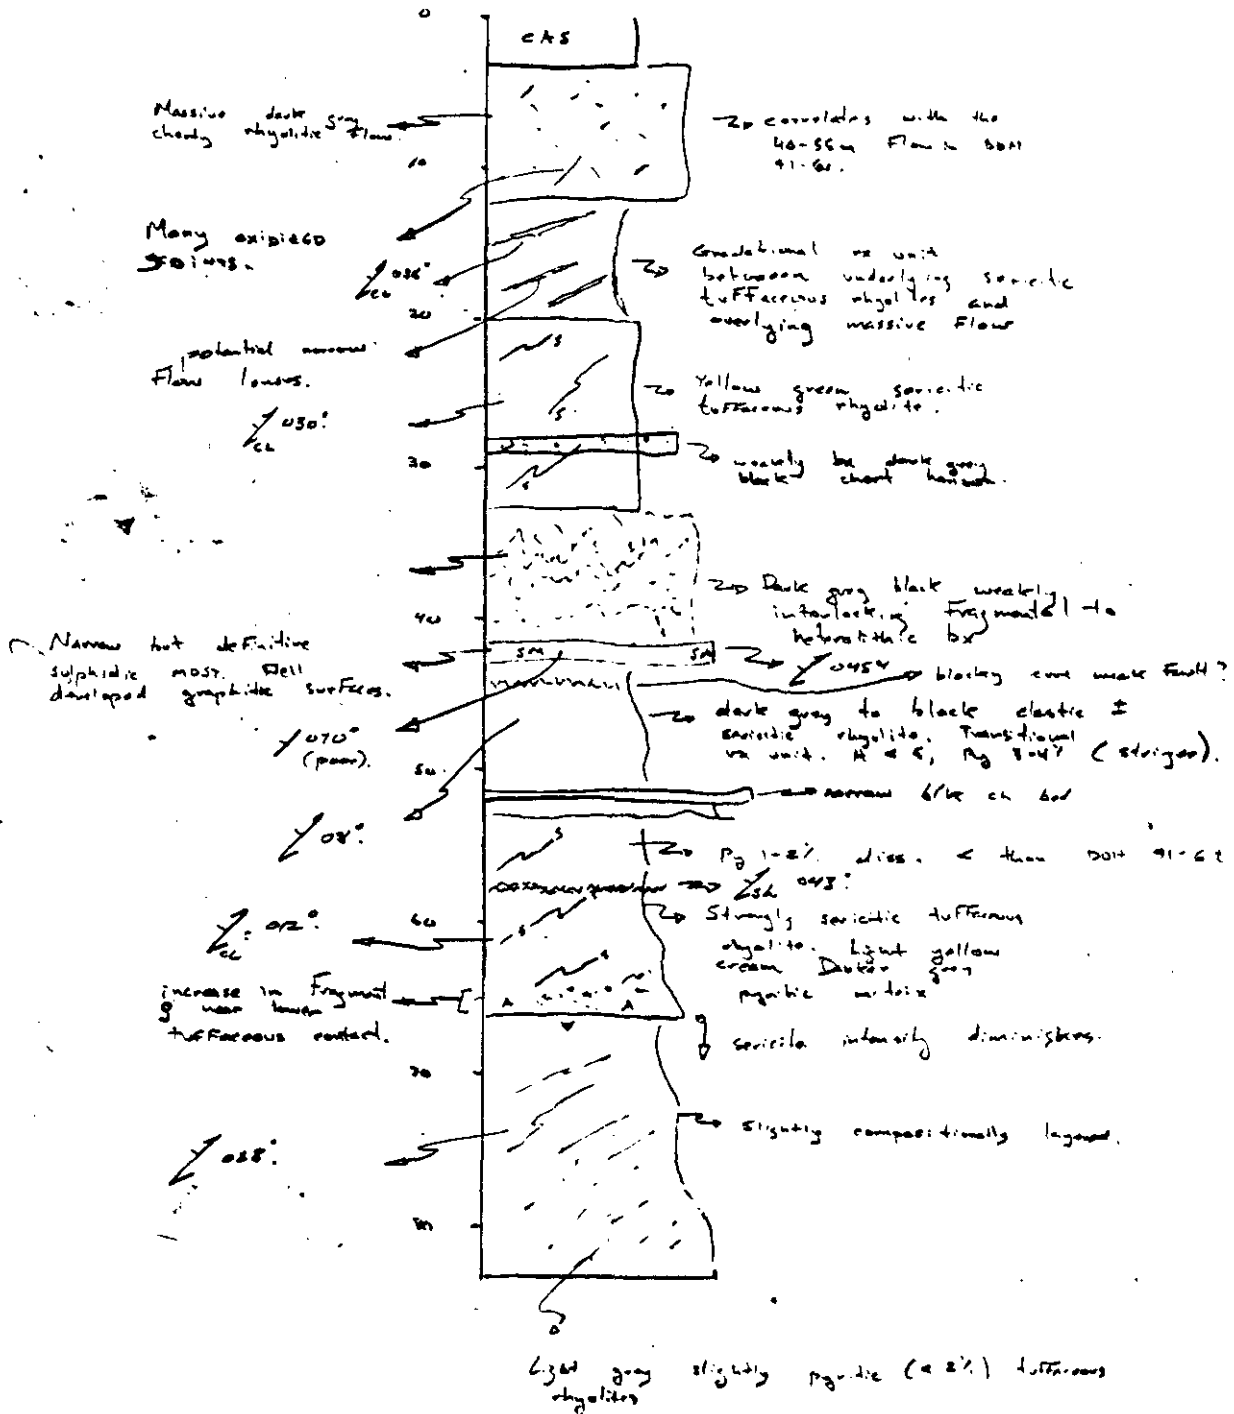 0
CAS
Massive dark grey
cherty rhyolitic Flow.
correlates with the
Flow in DDH
10
Many
036°
CL
Gradational rx unit
between underlying sericitic
tuffaceous rhyolites and
overlying massive Flow
20
potential narrow
Flow lenses.
S
030°
CL
S
Yellow green sericitic
tuffaceous rhyolite.
30
S
weakly bx dark grey
black chert horizon.
40
Dark grey black weakly
interlocking Fragmental to
heterolithic bx
Narrow but definitive
sulphidic Well
developed graphitic surfaces.
SM
SM
blocky core weak Fault?
070°
(poor).
dark grey to black clastic ±
sericitic rhyolite. Transitional
rx unit. Py (stringer).
50
narrow blk ch bed
S
Py 1-2% diss. < than DDH 91-62
043°
012°
CL
60
S
S
Strongly sericitic tuffaceous
rhyolite. Light yellow
cream Darker grey
pyritic matrix
increase in Fragment
near lower
tuffaceous contact.
A
A
sericite intensity diminishes.
70
slightly compositionally layered.
Light grey slightly pyritic (< 2%) tuffaceous
rhyolites